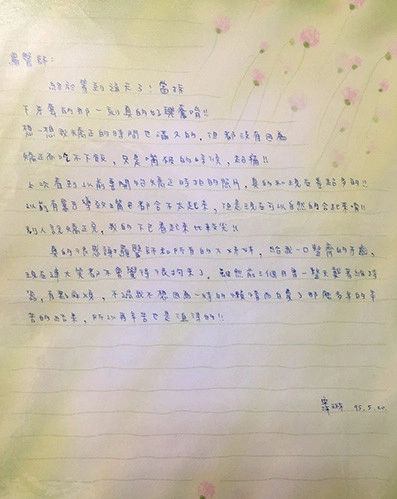 羅醫師:
終於等到這天了!當拆
下牙套的那一刻真的好興奮唷!!
想一想我矯正的時間也滿久的,但都沒有因為
矯正而吃不下飯,只是嘴破的時候,超痛!!
上次看到以前要開始矯正時拍的照片,真的和現在差超多的!!
以前有暴牙導致嘴巴都合不太起來,但是現在可以自然的合起來嘍!!
別人說矯正完,我的下巴看起來比較尖!!
真的很感謝羅醫師和所有的大姊姊,給我一口整齊的牙齒,
現在講大笑都不要覺得很拘束了,雖然前三個月要一整天都戴維持
器,有點麻煩,不過我不想因為一時的懶惰而白費了那麼多年的辛
苦的結果,所以再辛苦也是值得的!!
95.5.20